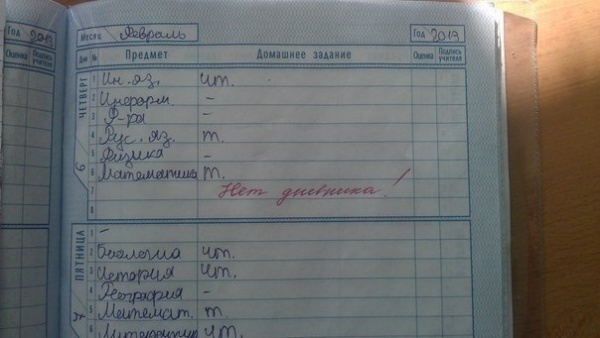 Год 2013
Оценка Подпись учителя
Месяц Февраль Год 2013
Дни № Предмет Домашнее задание Оценка Подпись учителя
ЧЕТВЕРГ
6
1 Ин. яз. чт.
2 Информ. -
3 Ф-ра -
4 Рус. яз. т.
5 Физика -
6 Математика т.
7 Нет дневника!
8
ПЯТНИЦА
7
1 -
2 Биология чт.
3 История чт.
4 География -
5 Математ. т.
6 Литература чт.